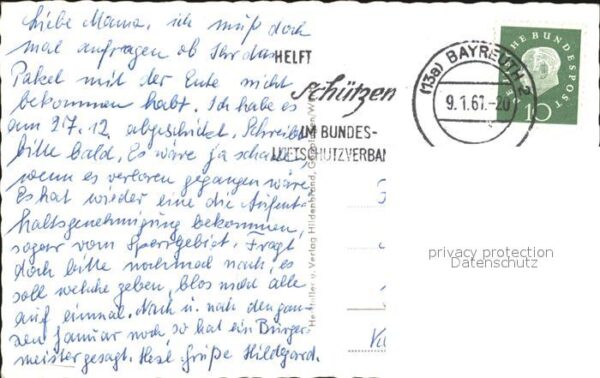 Liebe Mama, ich muß doch
mal anfragen ob Ihr das
Paket mit der Ente nicht
bekommen habt. Ich habe es
am 27.12. abgeschickt. Schreibt
bitte bald. Es wäre ja schade,
wenn es verloren gegangen wäre.
Es hat wieder eine die Aufent-
haltsgenehmigung bekommen,
sogar vom Sperrgebiet. Fragt
doch bitte nochmal nach, es
soll welche geben, blos nicht alle
auf einmal. Nach u. nach den gan-
zen Januar noch so hat ein Bürger-
meister gesagt. Herzl. Grüße Hildegard.
HELFT
schützen
IM BUNDES-
LUFTSCHUTZVERBAN
(13a) BAYREUTH 2
9.1.61.-20
E BUNDESPOST
10
Hersteller u. Verlag Hildenbrand,
privacy protection
Datenschutz